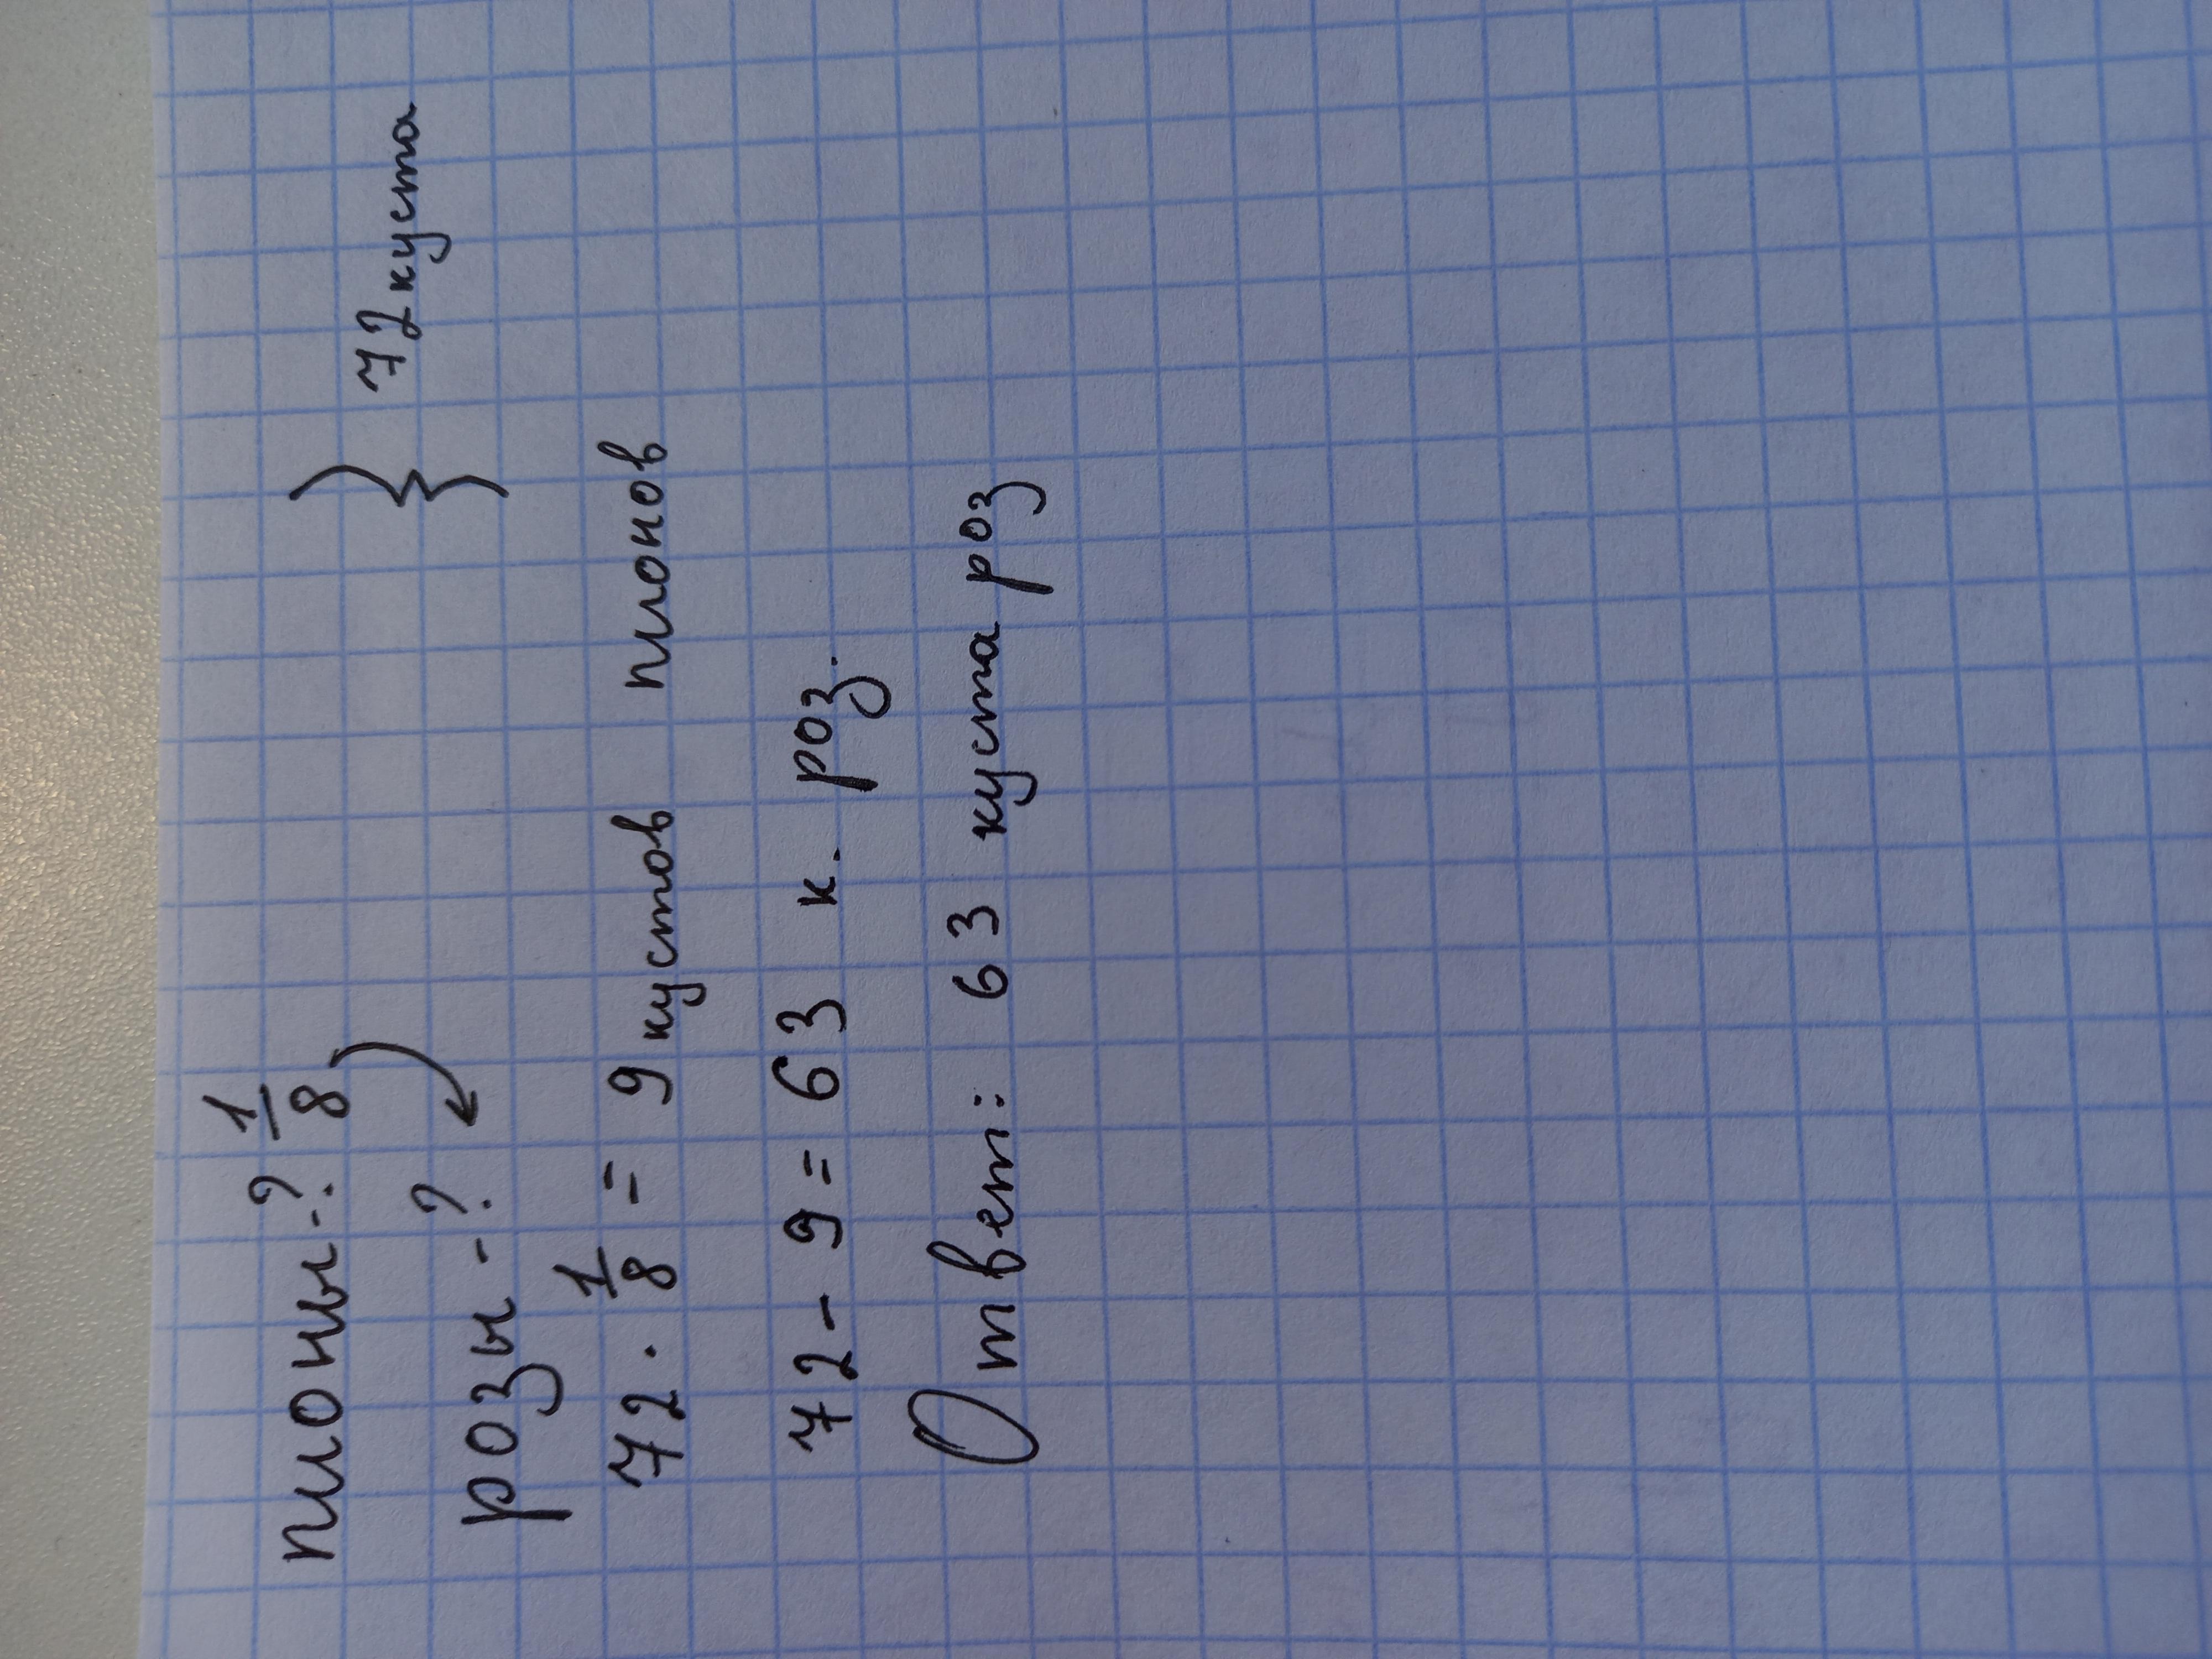 пионы-? 1/8
розы-?
} 72 куста
72 · 1/8 = 9 кустов пионов
72 - 9 = 63 к. роз.
Ответ: 63 куста роз